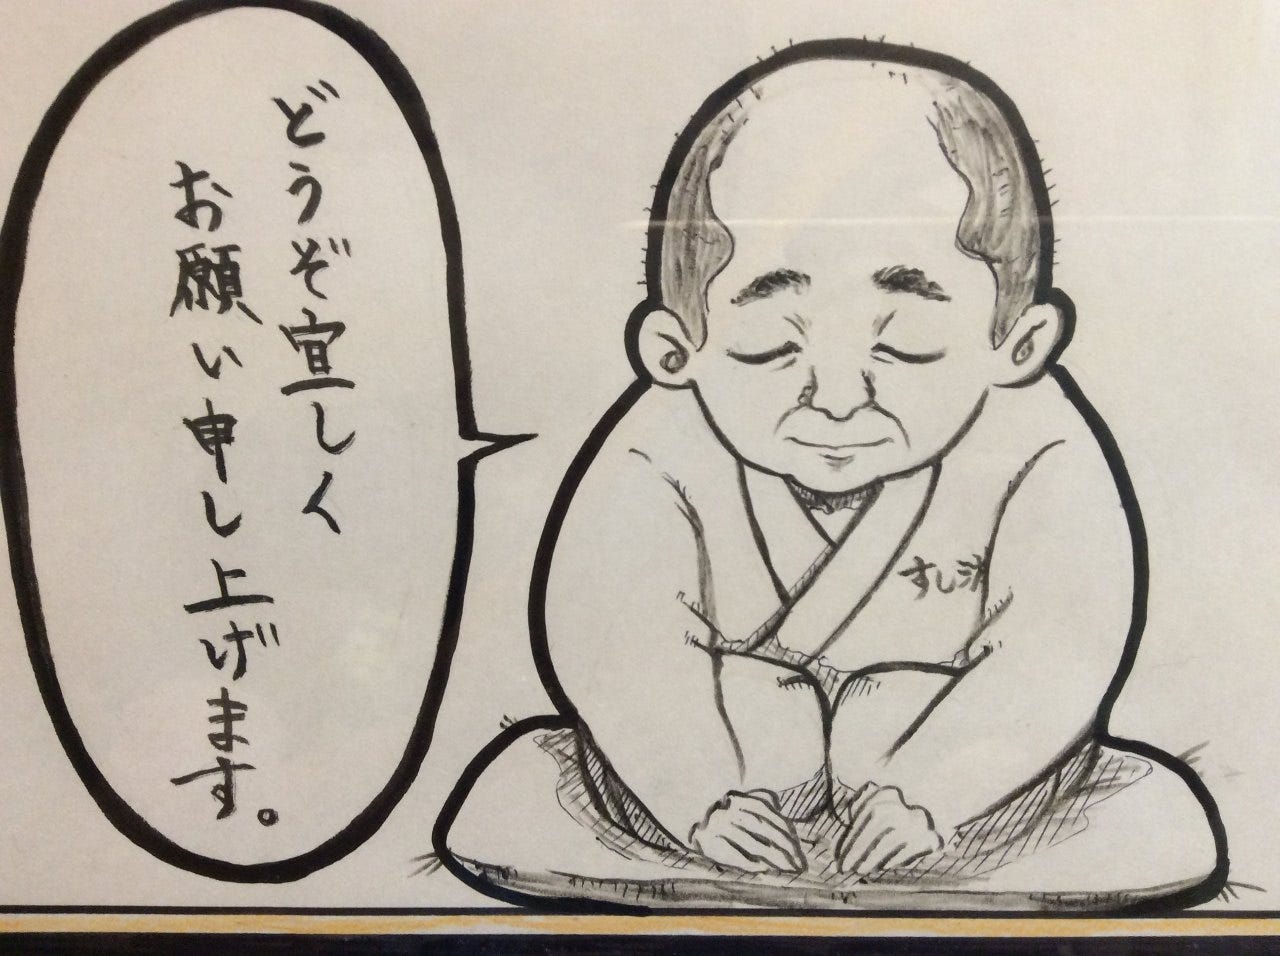 どうぞ宜しく
お願い申し上げます。
すし